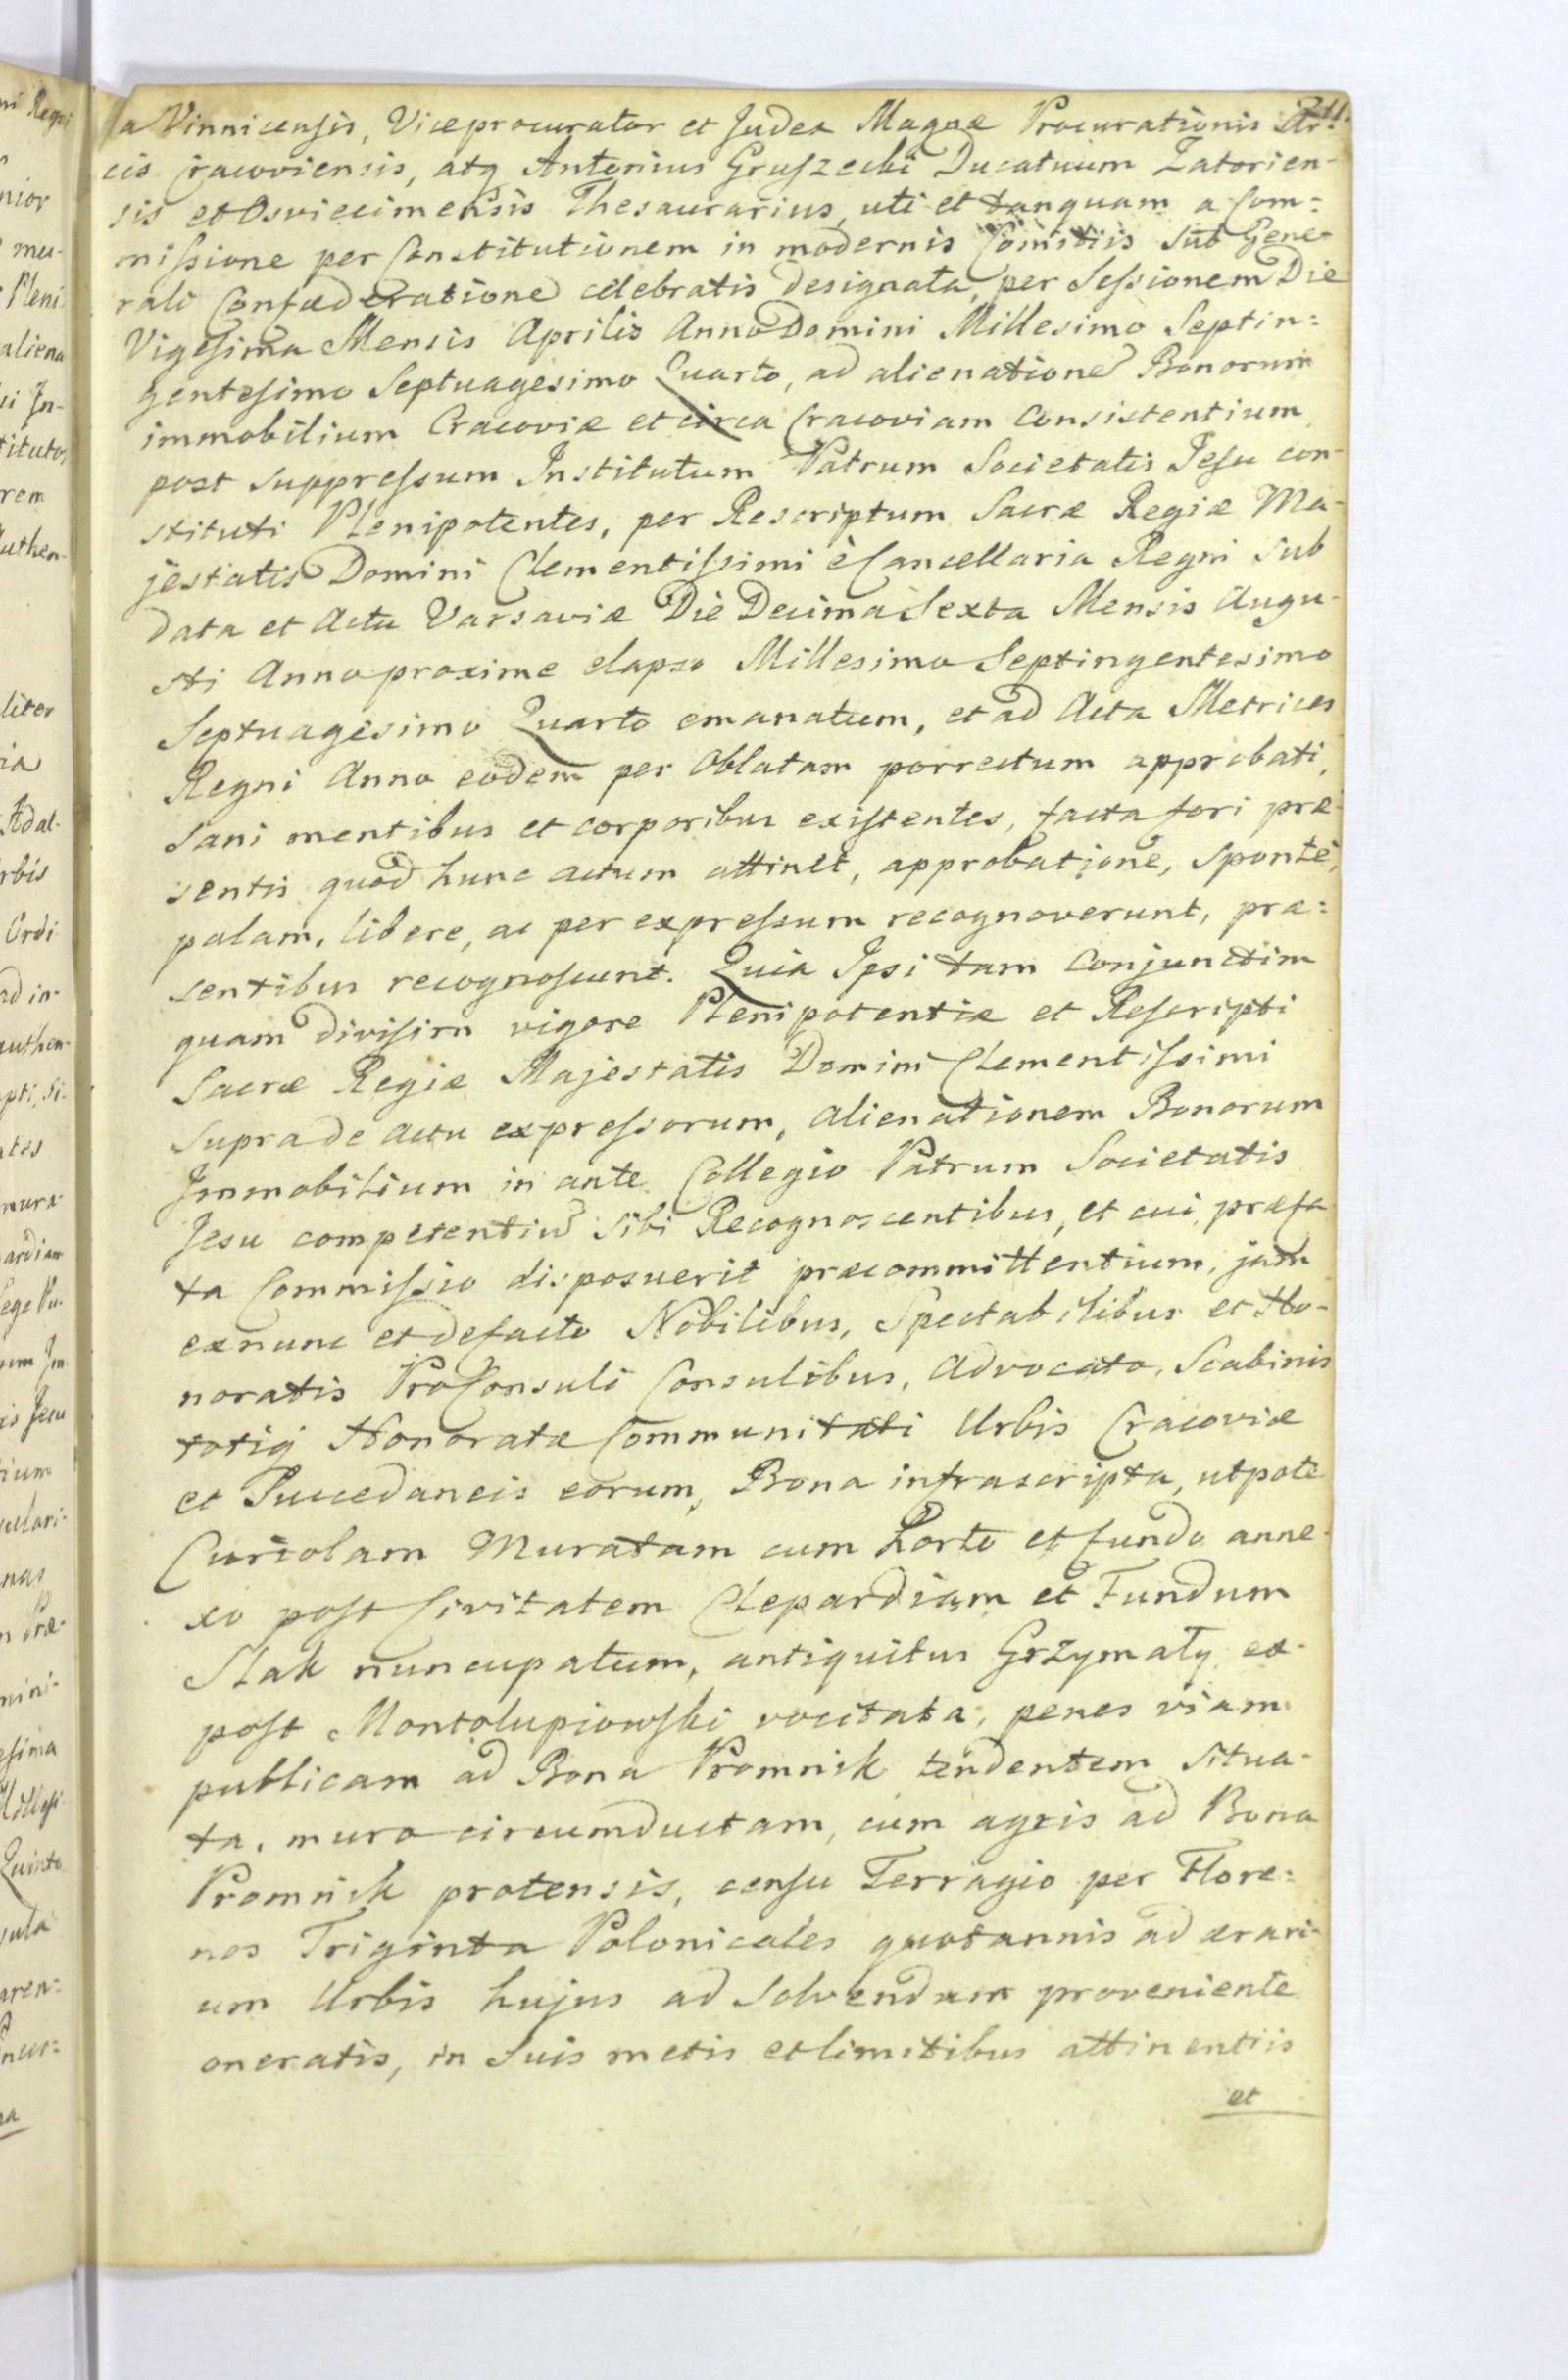 a Vinnicensis, Viceprocurator et Judex Magnæ Procurationis Ar:
cis Cracoviensis, atq Antonius Gruszecki Ducatuum Zatorien-
sis et Osviecimensis Thesaurarius, uti et tanquam a Com:
missione per Constitutionem in modernis Comitiis sub Gene-
rali Confœderatione celebratis designata, per Sessionem Die
Vigesima Mensis Aprilis Anno Domini Millesimo Septin:
gentesimo Septuagesimo Quarto, ad alienatione Bonorum
immobilium Cracoviæ et circa Cracoviam Consistentium
post suppressum Institutum Patrum Societatis Jesu con-
stituti Plenipotentes, per Rescriptum Sacræ Regiæ Ma-
jestatis Domini Clementissimi è Cancellaria Regni sub
data et Actu Varsaviæ Die Decima Sexta Mensis Augu-
sti Anno proxime elapso Millesimo Septingentesimo
Septuagesimo Quarto emanatum, et ad Acta Metrices
Regni Anno eodem per Oblatam porrectum approbati,
Sani mentibus et corporibus existentes, facta fori præ-
sentis quod hunc actum attinet, approbatione, sponte,
palam, libere, ac per expressum recognoverunt, præ:
sentibus recognoscunt. Quia Ipsi tam Conjunctim
quam divisim vigore Plenipotentiæ et Rescripti
Sacræ Regiæ Majestatis Domini Clementissimi
Supra de actu expressorum, alienationem Bonorum
Immobilium in ante Collegio Patrum Societatis
Jesu competentiu sibi Recognoscentibus, et cui præfa-
ta Commissio disposuerit præcommittentium, jam
exnunc et defacto Nobilibus, Spectabilibus et Ho-
noratis ProConsuli Consulibus, Advocato, Scabinis
totiq Honoratæ Communitati Urbis Cracoviæ
et Succedaneis eorum, Bona infrascripta, utpote
Curiolam Muratam cum horto et fundo anne-
xo post Civitatem Clepardiam et Fundum
Slak nuncupatum, antiquitus Grzymały ex-
post Montolupiowski vocitata, penes viam
publicam ad Bona Promnik tendentem situa-
ta, muro circumductam, cum agris ad Bona
Promnik protensis, censu Terragio per Flore:
nos Triginta Polonicales quotannis ad ærari-
um Urbis hujus ad solvendum proveniente
oneratis, in suis metis et limitibus attinentiis
et